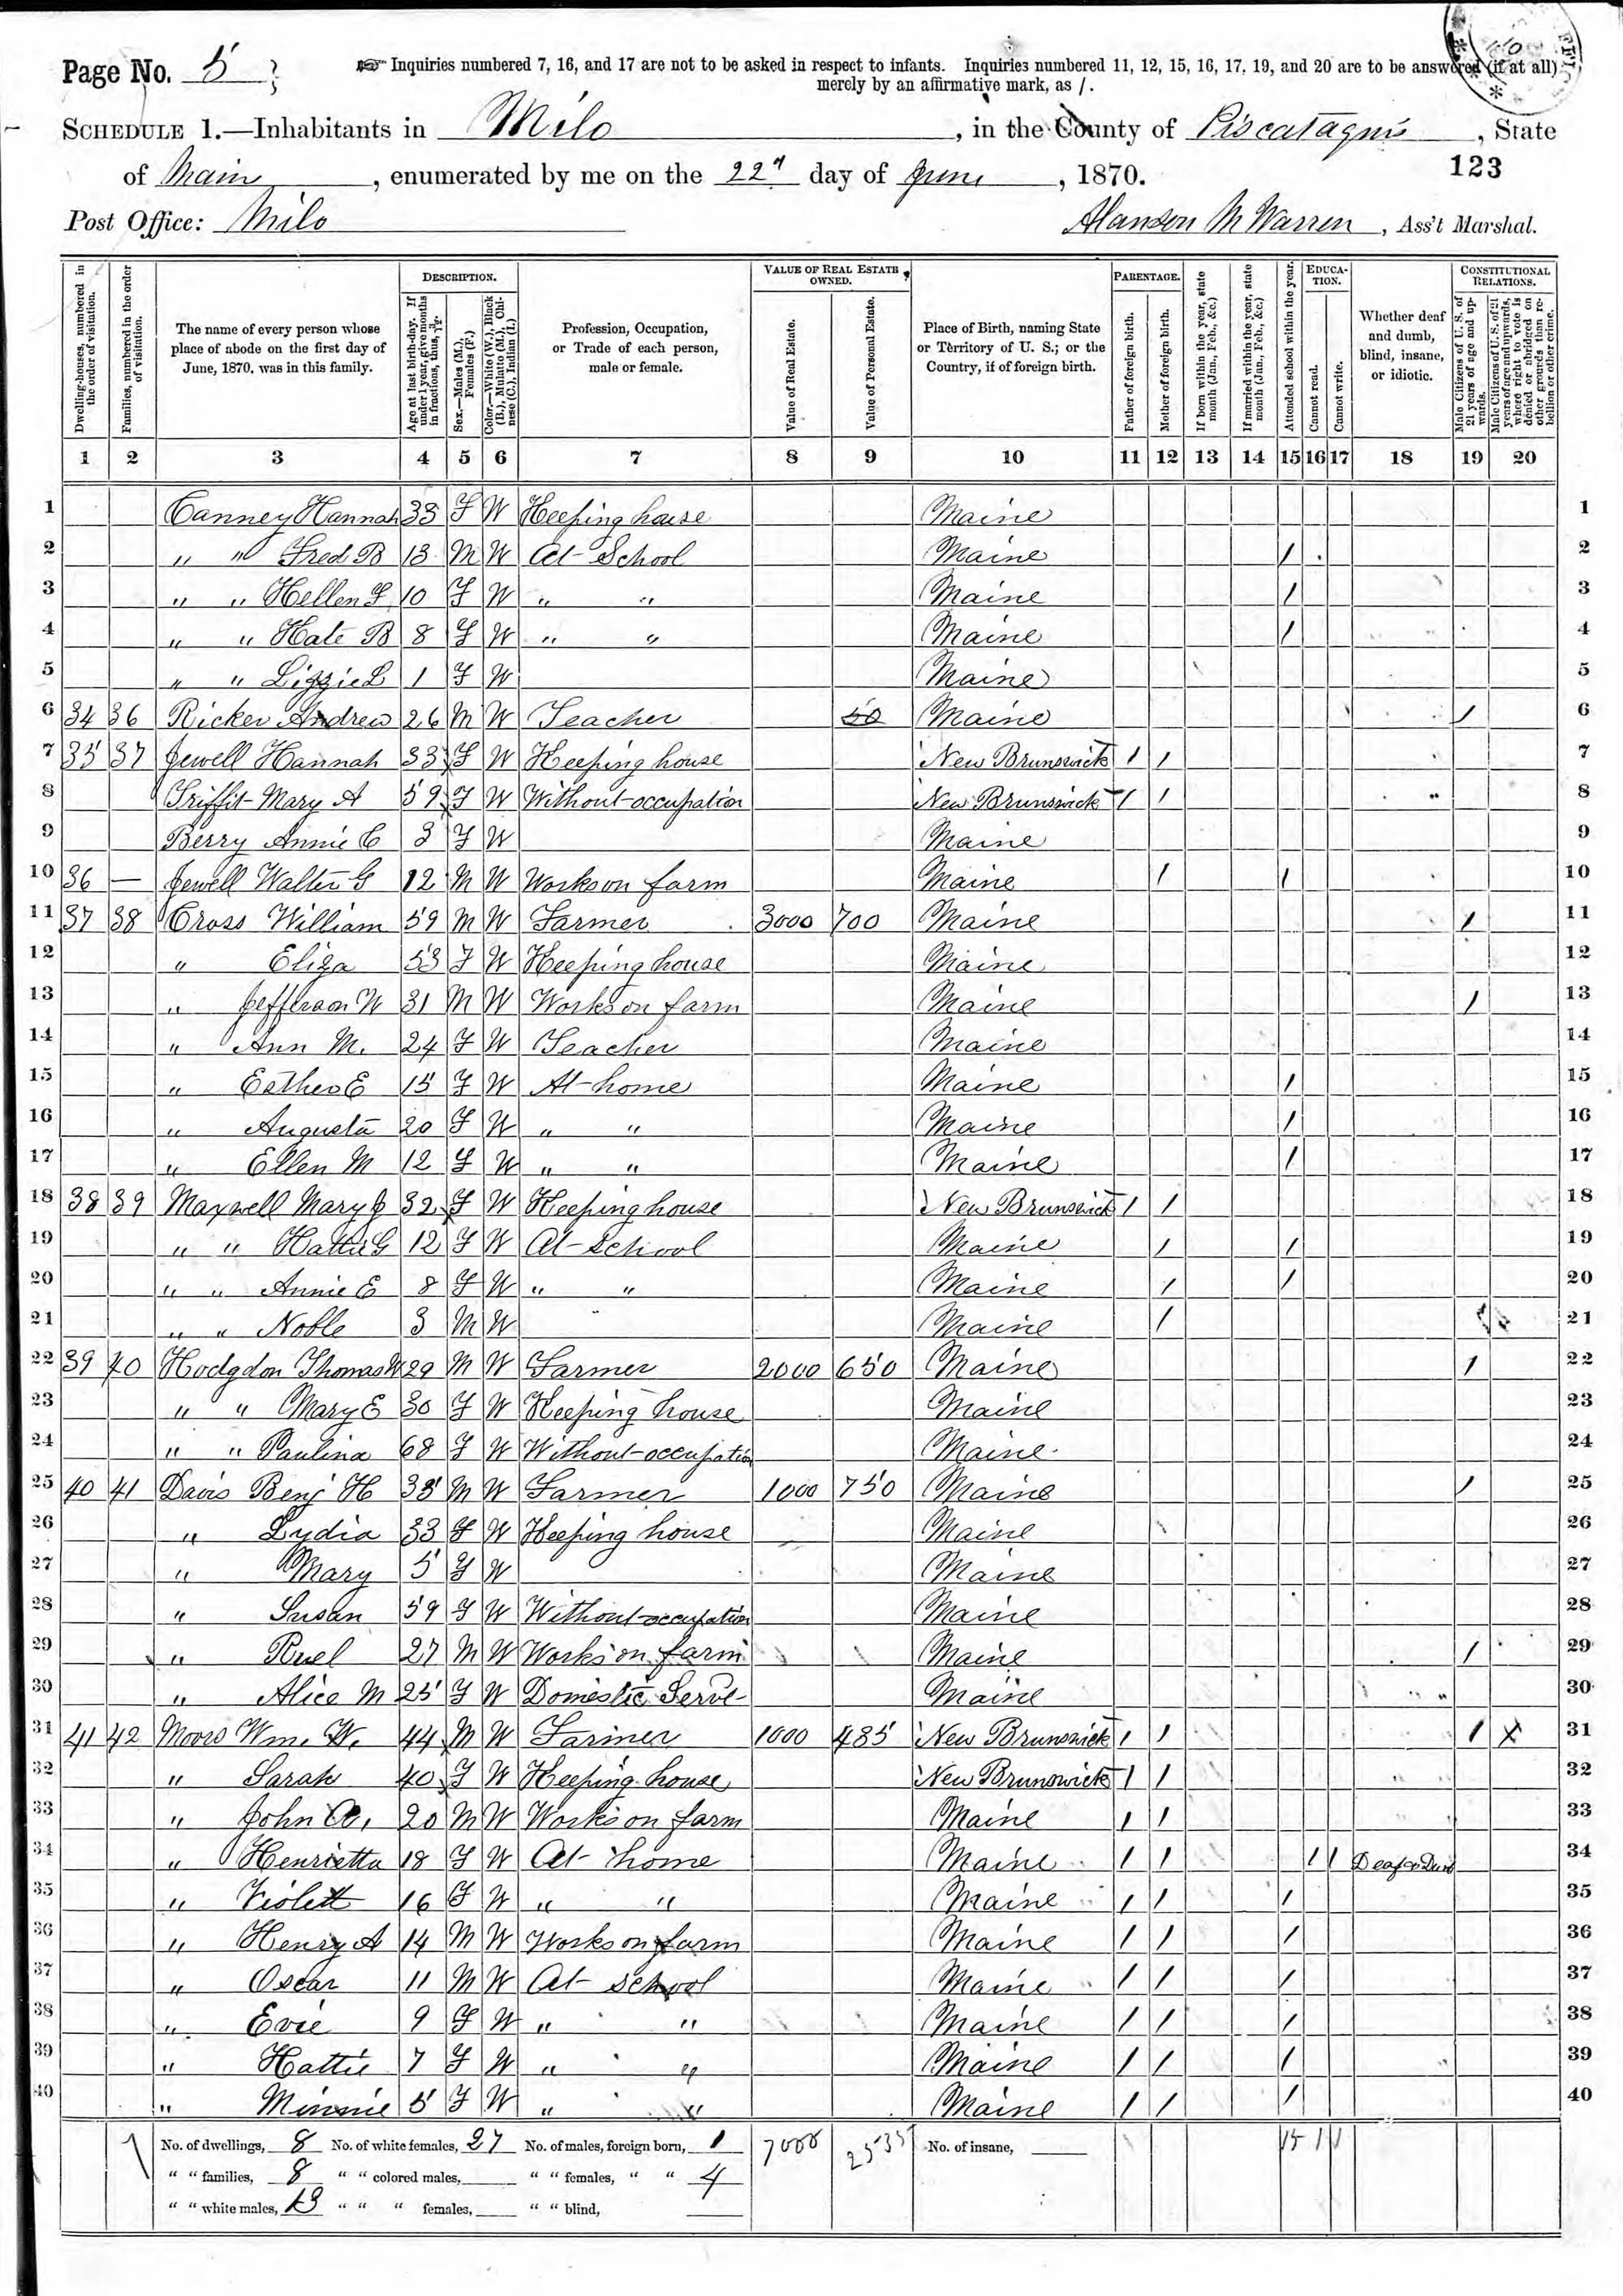 Page No. 5
Inquiries numbered 7, 16, and 17 are not to be asked in respect to infants. Inquiries numbered 11, 12, 15, 16, 17, 19, and 20 are to be answered (if at all)
merely by an affirmative mark, as /.
SCHEDULE 1.—Inhabitants in Milo, in the County of Piscataquis, State
of Main, enumerated by me on the 22d day of June, 1870. 123
Post Office: Milo Alanson M Warren, Ass't Marshal.
Dwelling-houses, numbered in the order of visitation.
Families, numbered in the order of visitation.
The name of every person whose place of abode on the first day of June, 1870, was in this family.
DESCRIPTION.
Age at last birth-day. If under 1 year, give months in fractions, thus, 3/12.
Sex.—Males (M.), Females (F.)
Color.—White (W.), Black (B.), Mulatto (M.), Chinese (C.), Indian (I.)
Profession, Occupation, or Trade of each person, male or female.
VALUE OF REAL ESTATE OWNED.
Value of Real Estate.
Value of Personal Estate.
Place of Birth, naming State or Territory of U. S.; or the Country, if of foreign birth.
PARENTAGE.
Father of foreign birth.
Mother of foreign birth.
If born within the year, state month (Jan., Feb., &c.)
If married within the year, state month (Jan., Feb., &c.)
Attended school within the year.
EDUCATION.
Cannot read.
Cannot write.
Whether deaf and dumb, blind, insane, or idiotic.
CONSTITUTIONAL RELATIONS.
Male Citizens of U. S. of 21 years of age and upwards.
Male Citizens of U. S. of 21 years of age and upwards, where right to vote is denied or abridged on other grounds than rebellion or other crime.
1 2 3 4 5 6 7 8 9 10 11 12 13 14 15 16 17 18 19 20
1 Canney Hannah 33 F W Keeping house Maine 1
2 " " Fred B 13 M W At School Maine / 2
3 " " Hellen F 10 F W " " Maine / 3
4 " " Kate B 8 F W " " Maine / 4
5 " " Lizzie L 1 F W Maine 5
6 34 36 Ricker Andrew 26 M W Teacher 50 Maine / 6
7 35 37 Jewell Hannah 33 F W Keeping house New Brunswick / / 7
8 Griffit Mary A 59 F W Without occupation New Brunswick / / 8
9 Berry Annie C 3 F W Maine 9
10 36 — Jewell Walter G 12 M W Works on farm Maine / / 10
11 37 38 Cross William 59 M W Farmer 3000 700 Maine / 11
12 " Eliza 53 F W Keeping house Maine 12
13 " Jefferson W 31 M W Works on farm Maine / 13
14 " Ann M. 24 F W Teacher Maine 14
15 " Esther E 15 F W At home Maine / 15
16 " Augusta 20 F W " " Maine / 16
17 " Ellen M 12 F W " " Maine / 17
18 38 39 Maxwell Mary J 32 F W Keeping house New Brunswick / / 18
19 " " Hattie G 12 F W At School Maine / / 19
20 " " Annie E 8 F W " " Maine / / 20
21 " " Noble 3 M W Maine / 21
22 39 40 Hodgdon Thomas W 29 M W Farmer 2000 650 Maine / 22
23 " " Mary E 30 F W Keeping house Maine 23
24 " " Paulina 68 F W Without occupation Maine 24
25 40 41 Davis Benj H 35 M W Farmer 1000 750 Maine / 25
26 " Lydia 33 F W Keeping house Maine 26
27 " Mary 5 F W Maine 27
28 " Susan 59 F W Without occupation Maine 28
29 " Ruel 27 M W Works on farm Maine / 29
30 " Alice M 25 F W Domestic Servt Maine 30
31 41 42 Moors Wm. W. 44 M W Farmer 1000 485 New Brunswick / / / X 31
32 " Sarah 40 F W Keeping house New Brunswick / / 32
33 " John 20 M W Works on farm Maine / / 33
34 " Henrietta 18 F W At home Maine / / / / Deaf & Dum 34
35 " Violett 16 F W " " Maine / / / 35
36 " Henry A 14 M W Works on farm Maine / / / 36
37 " Oscar 11 M W At school Maine / / / 37
38 " Evie 9 F W " " Maine / / / 38
39 " Hattie 7 F W " " Maine / / / 39
40 " Minnie 5 F W " " Maine / / / 40
No. of dwellings, 8 No. of white females, 27 No. of males, foreign born, 1 7000 2535 No. of insane, 15 1 1
" " families, 8 " " colored males, " " females, " " 4
" " white males, 13 " " " females, " " blind,